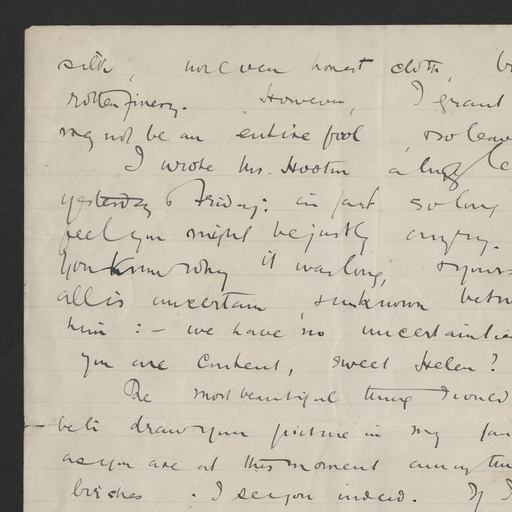 silk, nor even honest cloth, b
rotten finery. However, I grant
may not be an entire fool, so leav
I wrote Mr. Hooton a long le
yesterday Friday: in fact so long
feel you might be justly angry.
You know why it was long, yours
all is uncertain, & unknown betw
him :- we have no uncertainti
you are content, sweet Helen?
The most beautiful thing I could
be to draw your picture in my fan
as you are at this moment among the
birches. I see you indeed. If I